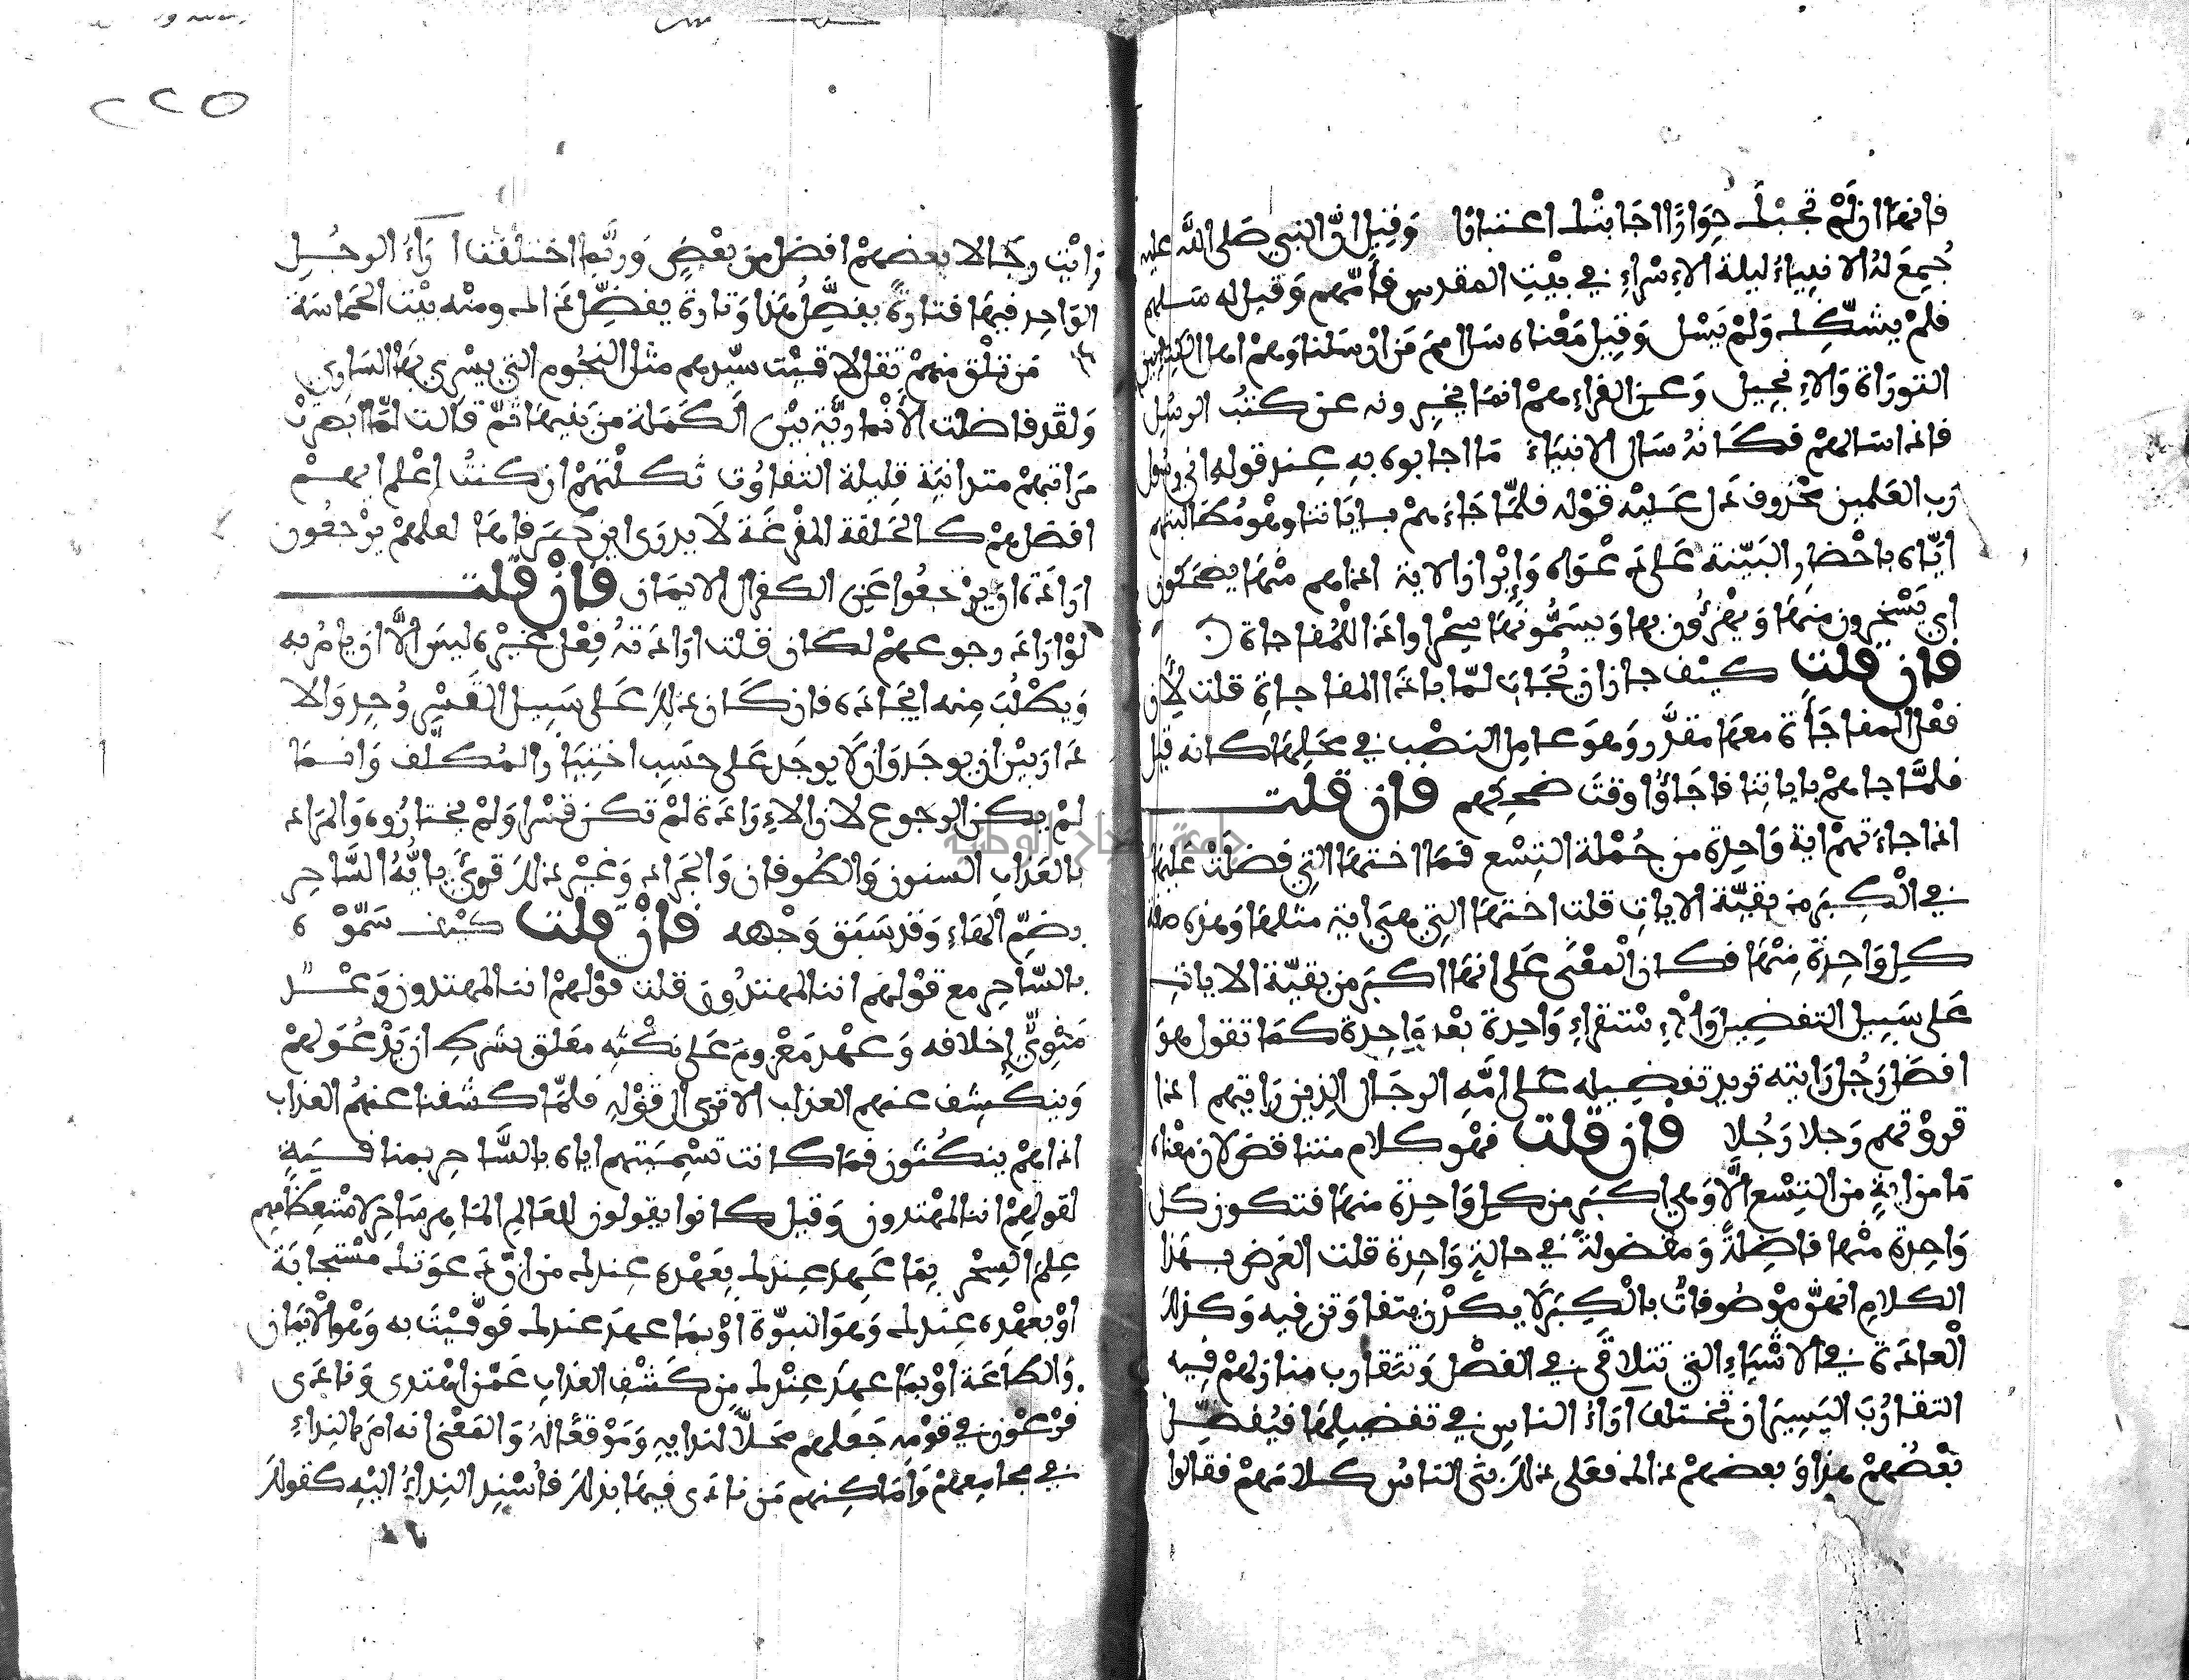 فانها ان لم تجبك حوارا اجابتك اعتبارا وقيل ان النبي صلى الله عليه
جمع له الانبياء ليلة الإسراء في بيت المقدس فأمهم وقيل له سلهم
فلم يشكك ولم يسل وقيل معناه سل امم من ارسلنا وهم اهل الكتابين
التوراة والإنجيل وعن الفراء هم انما يخبرونه عن كتب الرسل
فاذا سالهم فكانه سال الانبياء ما اجابوه به عند قوله اني رسول
رب العلمين محذوف دل عليه قوله فلما جاءهم بئاياتنا وهو مطالبتهم
اياه باحضار البينة على دعواه وإبراز الاية اذا هم منها يضحكون
اي يسخرون منها ويهزؤن بها ويسمونها سحرا واذا للمفاجاة
فان قلت كيف جاز ان يجاب لما باذا المفاجاة قلت لأن
فعل المفاجأة معها مقدر وهو عامل النصب في محلها كانه قيل
فلما جاهم باياتنا فاجاؤا وقت ضحكهم فان قلت
اذا جاءتهم اية واحدة من جملة التسع فما اختها التي فضلت عليها
في الكبر من بقية الايات قلت اختها التي هي اية مثلها وهذه صفة
كل واحدة منها فكان المعنى على انها اكبر من بقية الايات
على سبيل التفضيل والإستقراء واحدة بعد واحدة كما تقول هو
افضل رجل رايته تريد تفضيله على امة الرجال الذين رايتهم اذا
قروتهم رجلا رجلا فان قلت فهو كلام متناقض لان معناه
ما من اية من التسع الا وهي اكبر من كل واحدة منها فتكون كل
واحدة منها فاضلة ومفضولة في حالة واحدة قلت الغرض بهذا
الكلام انهن موصوفات بالكبر لا يكدن يتفاوتن فيه وكذلك
العادة في الاشياء التي تتلاقى في الفضل وتتقارب منازلهم فيه
التقارب اليسير ان تختلف اراء الناس في تفضيلها فيفضل
بعضهم هذا وبعضهم ذاك فعلى ذلك بنى الناس كلامهم فقالوا
٢٢٥
رايت رجالا بعضهم افضل من بعض وربما اختلفت اراء الرجل
الواحد فيها فتارة يفضل هذا وتارة يفضل ذاك ومنه بيت الحماسة
من تلق منهم تقل لاقيت سيدهم مثل النجوم التي يسري بها الساري
ولقد فاضلت الأنمارية بين الكملة من بنيها ثم قالت لما ابصرت
مراتبهم متدانية قليلة التفاوت ثكلتهم ان كنت اعلم ايهم
افضل هم كالحلقة المفرغة لا يدرى اين طرفاها لعلهم يرجعون
ارادة ان يرجعوا عن الكفر الى الايمان فان قلت
لو اراد رجوعهم لكان قلت ارادته فعل غيره ليس الا ان يامر به
ويطلب منه ايجاده فان كان ذلك على سبيل القسر وجد والا
دار بين ان يوجد وان لا يوجد على حسب اختيار المكلف وانما
لم يكن الرجوع لان الإرادة لم تكن قسرا ولم يختاروه والمراد
بالعذاب السنون والطوفان والجراد وغير ذلك قوئ يايه الساحر
بضم الهاء وقد سبق وجهه فان قلت كيف سموه
بالساحر مع قولهم اننا لمهتدون قلت قولهم اننا لمهتدون وعد
منوي إخلافه وعهد معزوم على نكثه معلق بشرط ان يدعو لهم
وينكشف عنهم العذاب الا ترى الى قوله فلما كشفنا عنهم العذاب
اذا هم ينكثون فما كانت تسميتهم اياه بالساحر بمنافية
لقولهم اننا لمهتدون وقيل كانوا يقولون للعالم الماهر ساحر لاستعظامهم
علم السحر بما عهد عندك بعهده عندك من ان دعوتك مستجابة
او بعهده عندك وهو النبوة او بما عهد عندك فوفيت به وهو الايمان
والطاعة او بما عهد عندك من كشف العذاب عمن اهتدى ونادى
فرعون في قومه جعلهم محلا لندايه وموقعا له والمعنى انه امر بالنداء
في مجامعهم واماكنهم من نادى فيها بذلك فأسند النداء اليه كقولك